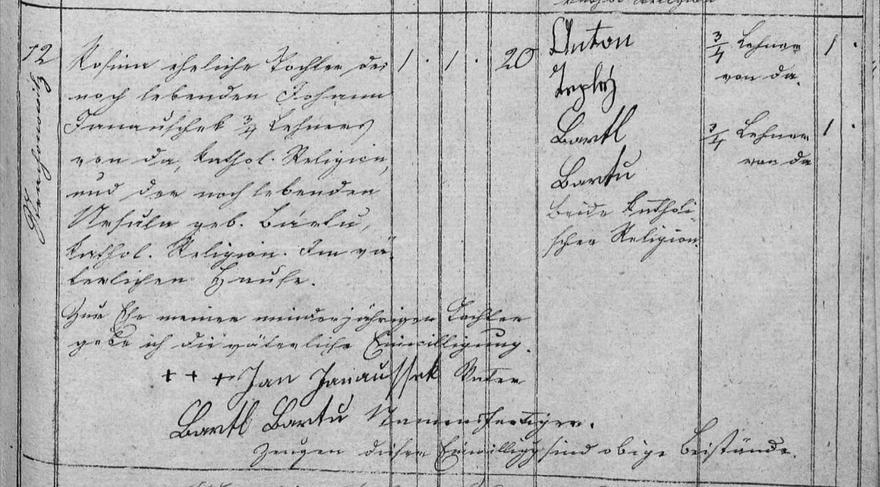 12
Rosina eheliche Tochter des
noch lebenden Johann
Janauschek 3/4 Lehners
von da, kathol. Religion,
und der noch lebenden
Ursula geb. Bartu,
kathol. Religion. Im vä-
terlichen Hause.
1. 1. 20
Anton
Teply
Bartl
Bartu
beide katholi-
scher Religion.
3/4 Lehner
von da.
3/4 Lehner
von da
1.
1.
Zur Ehe meiner minderjährigen Tochter
gebe ich die väterliche Einwilligung.
+ + + Jan Janaussek Vater
Bartl Bartu Namensfertiger.
Zeugen dieser Einwilligg sind obige Beistände.